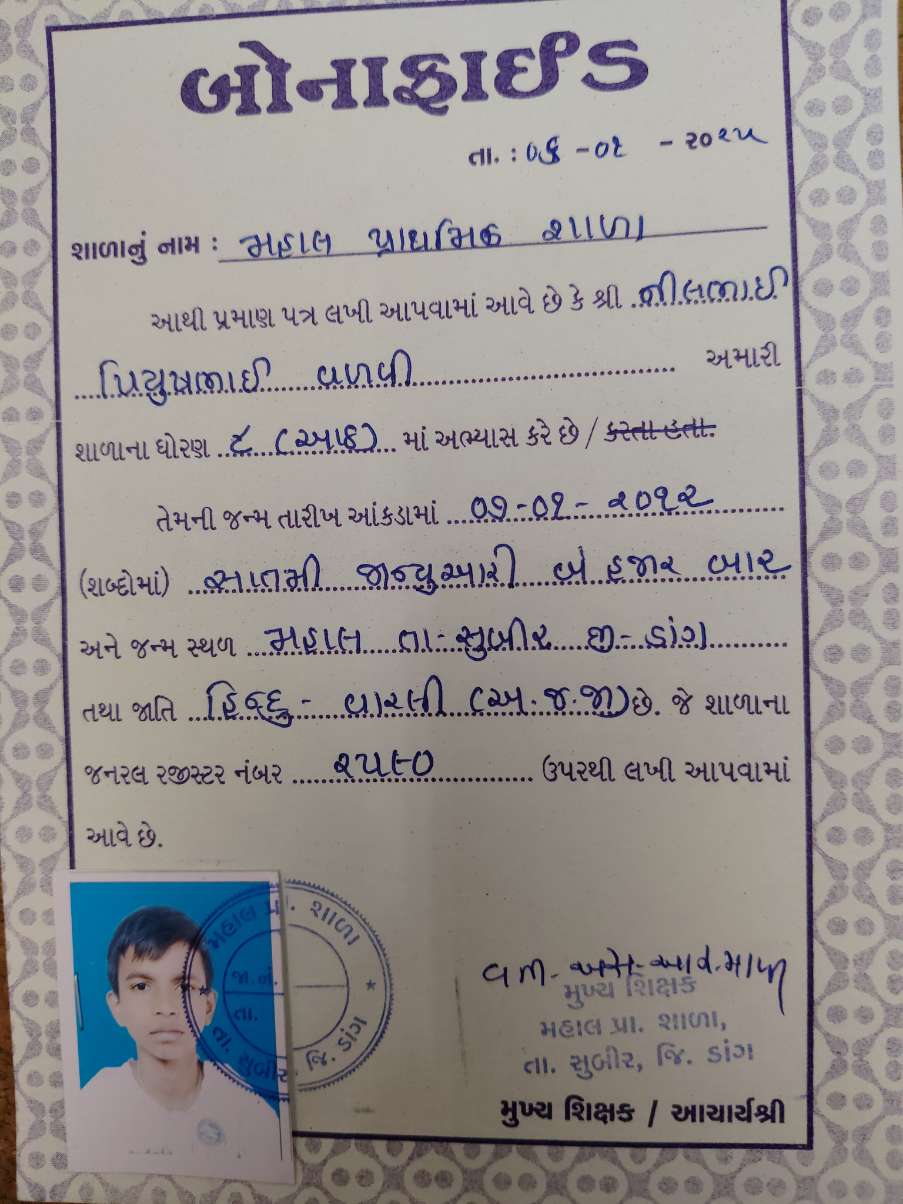 બોનાફાઈડ
તા. : ૦૬ -૦૧ - ૨૦૨૫
શાળાનું નામ : મહાલ પ્રાથમિક શાળા
આથી પ્રમાણ પત્ર લખી આપવામાં આવે છે કે શ્રી નીલભાઈ
પિયુષભાઈ વળવી અમારી
શાળાના ધોરણ ૮ (આઠ) માં અભ્યાસ કરે છે / કરતા હતા.
તેમની જન્મ તારીખ આંકડામાં ૦૭-૦૧-૨૦૧૨
(શબ્દોમાં) સાતમી જાન્યુઆરી બે હજાર બાર
અને જન્મ સ્થળ મહાલ તા-સુબીર જી-ડાંગ
તથા જાતિ હિન્દુ - વારલી (અ.જ.જા) છે. જે શાળાના
જનરલ રજીસ્ટર નંબર ૨૫૯૦ ઉપરથી લખી આપવામાં
આવે છે.
મહાલ પ્રા. શાળા
જા.નં.
તા.
તા. સુબીર જિ. ડાંગ
મુખ્ય શિક્ષક
મહાલ પ્રા. શાળા,
તા. સુબીર, જિ. ડાંગ
મુખ્ય શિક્ષક / આચાર્યશ્રી